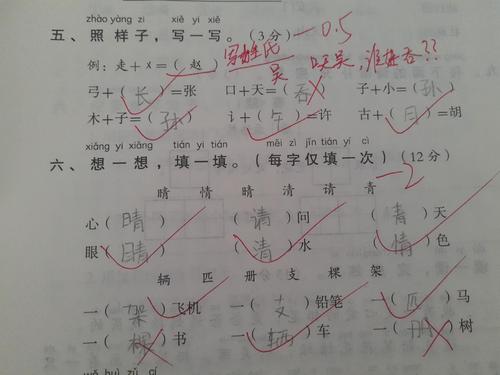 zhào yàng zi xiě yi xiě
五、照样子，写一写。（3分）—0.5
写姓氏
例：走+㐅=（赵） 吴 口天吴，谁姓吞??
弓+（长）=张 口+天=（吞） 子+小=（孙）
木+子=（孙） 讠+（午）=许 古+（月）=胡
xiǎng yi xiǎng tián yi tián měi zì jǐn tián yí cì
六、想一想，填一填。（每字仅填一次）（12分）
晴 情 睛 清 请 青 —2
心（晴） （请）问 （青）天
眼（睛） （清）水 （情）色
辆 匹 册 支 棵 架
一（架）飞机 一（支）铅笔 一（匹）马
一（棵）书 一（辆）车 一（册）树